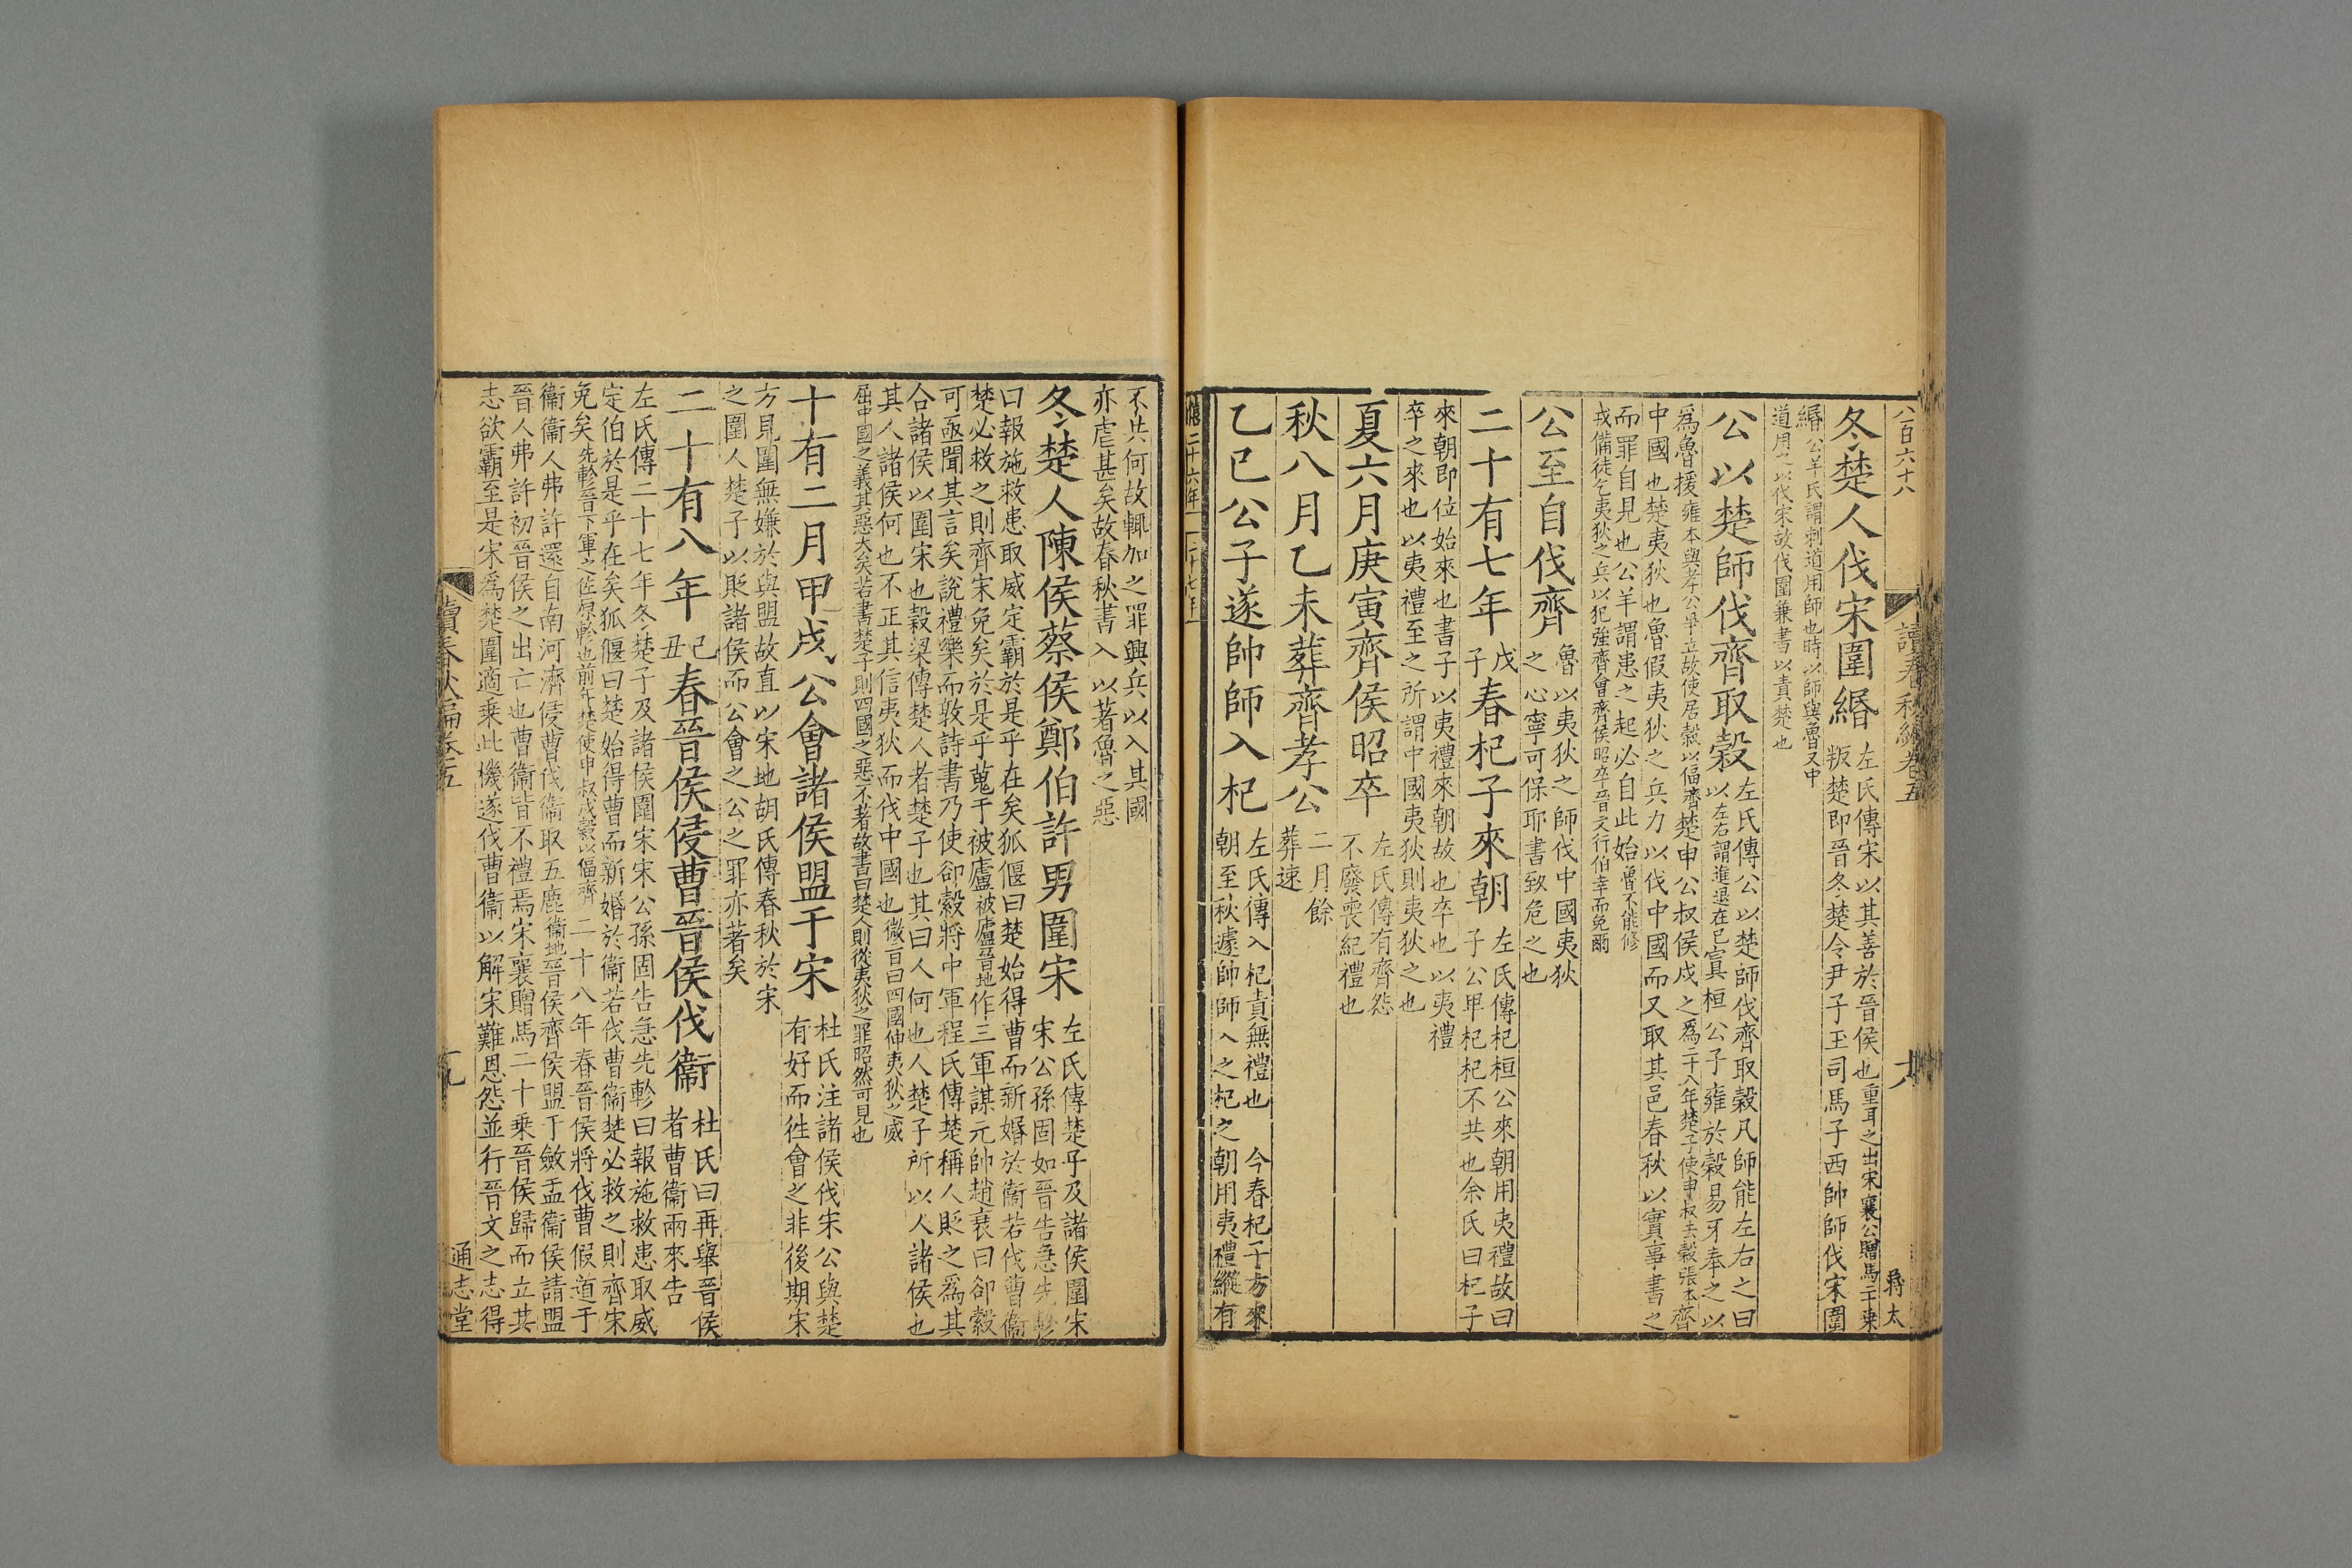 八百六十八
讀春秋編卷五
十八
蔣太
冬楚人伐宋圍緡
左氏傳宋以其善於晉侯也重耳之出宋襄公贈馬二十乘
叛楚即晉冬楚令尹子玉司馬子西帥師伐宋圍
緡公羊氏謂刺道用師也時以師與魯又中
道用之以伐宋故伐圍兼書以責楚也
公以楚師伐齊取穀
左氏傳公以楚師伐齊取穀凡師能左右之曰
以左右謂進退在已寘桓公子雍於穀易牙奉之以
爲魯援雍本與孝公爭立故使居穀以偪齊楚申公叔侯戍之爲二十八年楚子使申叔去穀張本齊
中國也楚夷狄也魯假夷狄之兵力以伐中國而又取其邑春秋以實事書之
而罪自見也公羊謂患之起必自此始魯不能修
戎備徒乞夷狄之兵以犯強齊會齊侯昭卒晉文行伯幸而免爾
公至自伐齊
魯以夷狄之師伐中國夷狄
之心寧可保耶書致危之也
二十有七年戊子春杞子來朝
左氏傳杞桓公來朝用夷禮故曰
子公卑杞杞不共也余氏曰杞子
來朝即位始來也書子以夷禮來朝故也卒也以夷禮
卒之來也以夷禮至之所謂中國夷狄則夷狄之也
夏六月庚寅齊侯昭卒
左氏傳有齊怨
不廢喪紀禮也
秋八月乙未葬齊孝公
二月餘
葬速
乙巳公子遂帥師入杞
左氏傳入杞責無禮也 今春杞子方來
朝至秋遽帥師入之杞之朝用夷禮縱有
僖二十六年 二十七年
不共何故輒加之罪興兵以入其國
亦虐甚矣故春秋書入以著魯之惡
冬楚人陳侯蔡侯鄭伯許男圍宋
左氏傳楚子及諸侯圍宋
宋公孫固如晉告急先軫
曰報施救患取威定霸於是乎在矣狐偃曰楚始得曹而新婚於衞若伐曹衞
楚必救之則齊宋免矣於是乎蒐于被廬被廬晉地作三軍謀元帥趙衰曰卻縠
可亟聞其言矣說禮樂而敦詩書乃使卻縠將中軍程氏傳楚稱人貶之爲其
合諸侯以圍宋也穀梁傳楚人者楚子也其曰人何也人楚子所以人諸侯也
其人諸侯何也不正其信夷狄而伐中國也微言曰四國伸夷狄之威
屈中國之義其惡大矣若書楚子則四國之惡不著故書曰楚人則從夷狄之罪昭然可見也
十有二月甲戌公會諸侯盟于宋
杜氏注諸侯伐宋公與楚
有好而徃會之非後期宋
方見圍無嫌於與盟故直以宋地胡氏傳春秋於宋
之圍人楚子以貶諸侯而公會之公之罪亦著矣
二十有八年己丑春晉侯侵曹晉侯伐衞
杜氏曰再舉晉侯
者曹衞兩來告
左氏傳二十七年冬楚子及諸侯圍宋宋公孫固告急先軫曰報施救患取威
定伯於是乎在矣狐偃曰楚始得曹而新婚於衞若伐曹衞楚必救之則齊宋
免矣先軫晉下軍之佐原軫也前年楚使申叔戍穀以偪齊二十八年春晉侯將伐曹假道于
衞衞人弗許還自南河濟侵曹伐衞取五鹿衞地晉侯齊侯盟于斂盂衞侯請盟
晉人弗許初晉侯之出亡也曹衞皆不禮焉宋襄贈馬二十乘晉侯歸而立其
志欲霸至是宋爲楚圍適乗此機遂伐曹衞以解宋難恩怨並行晉文之志得
讀春秋編卷五
十九
通志堂